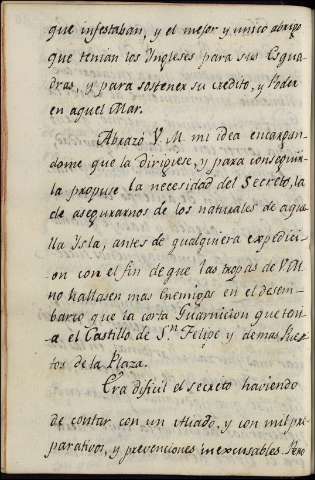 que infestaban, y el mejor y unico abrigo
que tenian los Yngleses para sus Esqua
dras, y para sostener su credito, y Poder
en aquel Mar.
Abrazó V. M. mi idea encargan
dome que la dirigiese, y para conseguir
la propuse la necesidad del Secreto, la
de asegurarnos de los naturales de aque
lla Ysla, antes de qualquiera expedici
on con el fin de que las tropas de V.M.
no hallasen mas Enemigos en el desem
barco que la corta Guarnicion que tení
a el Castillo de Sn. Felipe y demas Pues
tos de la Plaza.
Era dificil el secreto haviendo
de contar con un Aliado, y con mil pre
parativos, y prevenciones inexcusables. Pero